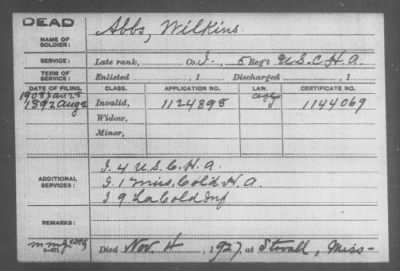 DEAD
NAME OF SOLDIER:
Abbs, Wilkins
SERVICE:
Late rank, Co. I, 5 Reg't U.S.C.H.A.
TERM OF SERVICE:
Enlisted , 1 Discharged , 1
DATE OF FILING. CLASS. APPLICATION NO. LAW. CERTIFICATE NO.
1892 Aug 2 Invalid, 1124898 1144069
Widow,
Minor,
ADDITIONAL SERVICES:
I. 4 U.S.C.H.A.
I. 1 Miss. Cold H.A.
I 9 La Cold Inf
REMARKS:
Died Nov 4, 1927, at Stovall, Miss-